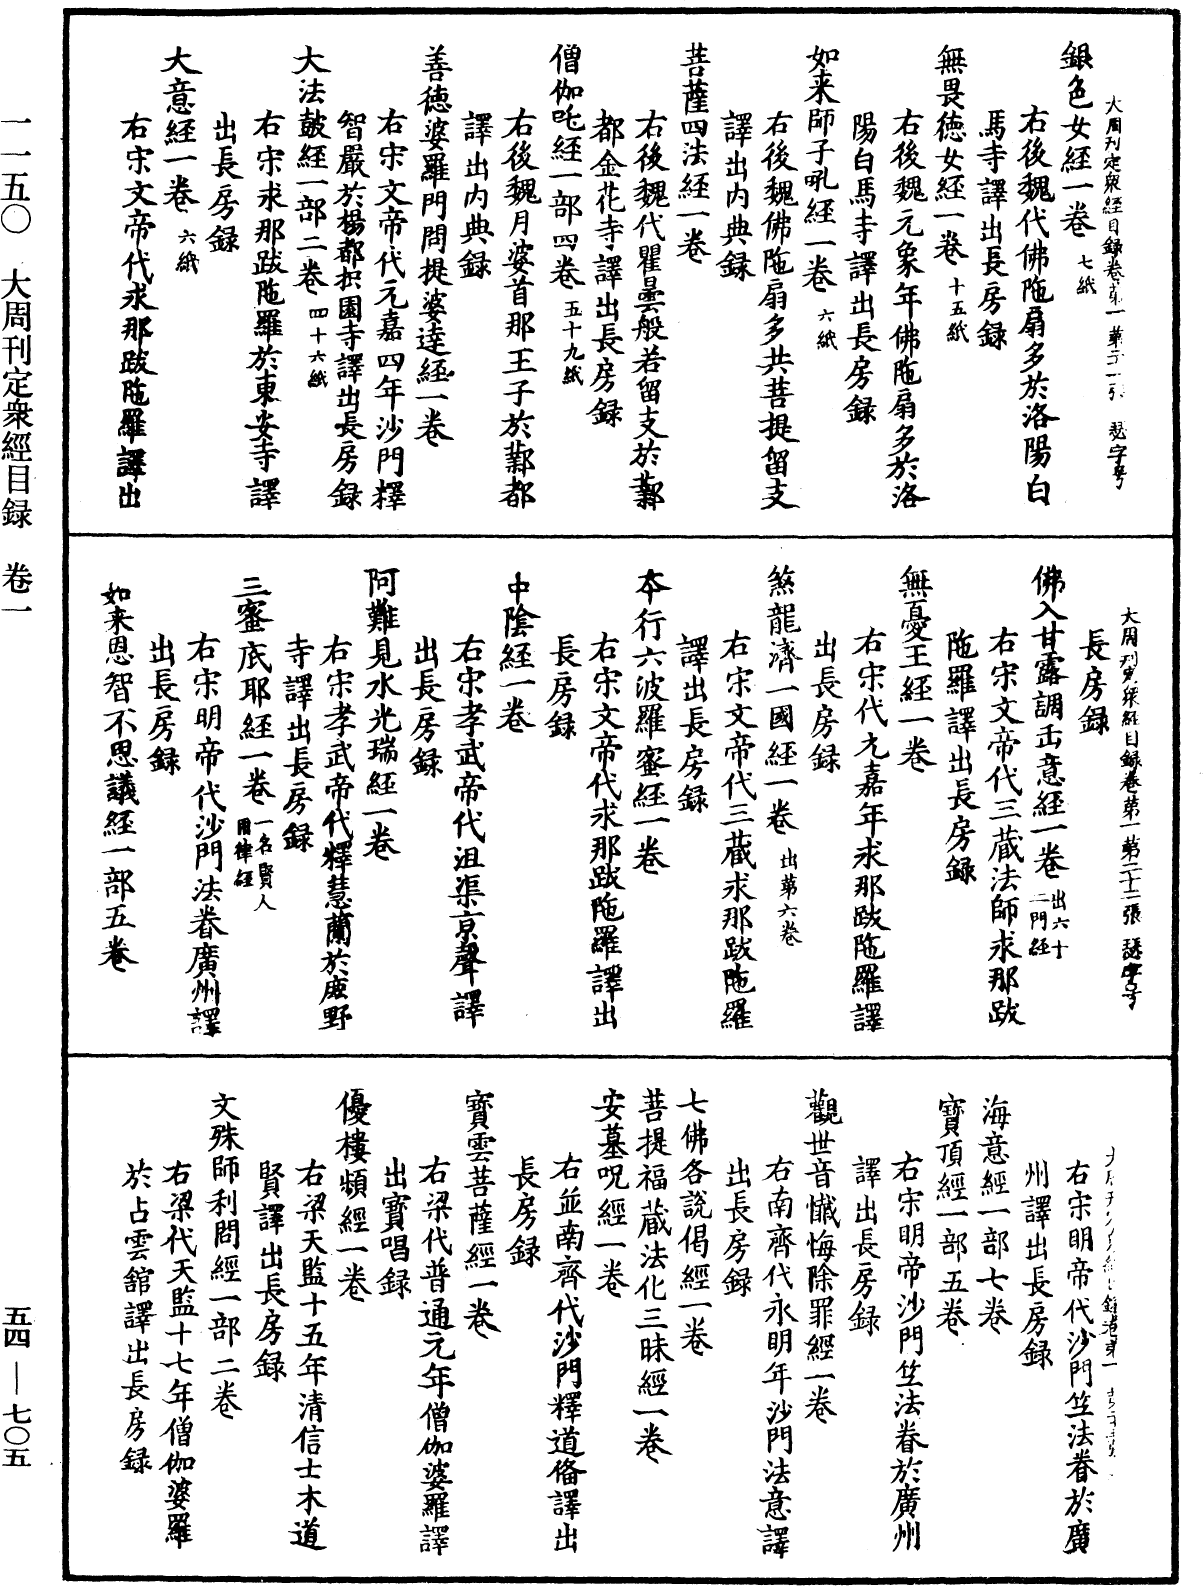 一一五〇　大周刊定衆經目録　卷一
五四—七〇五
大周刊定衆經目録卷第一　第二十一張　瑟字号
銀色女經一卷　七紙
右後魏代佛陁扇多於洛陽白
馬寺譯出長房録
無畏德女經一卷　十五紙
右後魏元象年佛陁扇多於洛
陽白馬寺譯出長房録
如来師子吼經一卷　六紙
右後魏佛陁扇多共菩提留支
譯出内典録
菩薩四法經一卷
右後魏代瞿曇般若留支於鄴
都金花寺譯出長房録
僧伽吒經一部四卷　五十九紙
右後魏月婆首那王子於鄴都
譯出内典録
善德婆羅門問提婆達經一卷
右宋文帝代元嘉四年沙門釋
智嚴於楊都枳園寺譯出長房録
大法皷經一部二卷　四十六紙
右宋求那跋陁羅於東安寺譯
出長房録
大意經一卷　六紙
右宋文帝代求那跋陁羅譯出
大周刊定衆經目録卷第一　第二十二張　瑟字号
長房録
佛入甘露調正意經一卷　出六十二門經
右宋文帝代三蔵法師求那跋
陁羅譯出長房録
無憂王經一卷
右宋代元嘉年求那跋陁羅譯
出長房録
煞龍濟一國經一卷　出第六卷
右宋文帝代三蔵求那跋陁羅
譯出長房録
本行六波羅蜜經一卷
右宋文帝代求那跋陁羅譯出
長房録
中陰經一卷
右宋孝武帝代沮渠京聲譯
出長房録
阿難見水光瑞經一卷
右宋孝武帝代釋慧蘭於鹿野
寺譯出長房録
三蜜底耶經一卷　一名賢人用律經
右宋明帝代沙門法眷廣州譯
出長房録
如来恩智不思議經一部五卷
右宋明帝代沙門竺法眷於廣
州譯出長房録
海意經一部七卷
寶頂經一部五卷
右宋明帝沙門竺法眷於廣州
譯出長房録
觀世音懴悔除罪經一卷
右南齊代永明年沙門法意譯
出長房録
七佛各説偈經一卷
菩提福蔵法化三昧經一卷
安墓呪經一卷
右並南齊代沙門釋道俻譯出
長房録
寶雲菩薩經一卷
右梁代普通元年僧伽婆羅譯
出寶唱録
優樓頻經一卷
右梁天監十五年清信士木道
賢譯出長房録
文殊師利問經一部二卷
右梁代天監十七年僧伽婆羅
於占雲舘譯出長房録